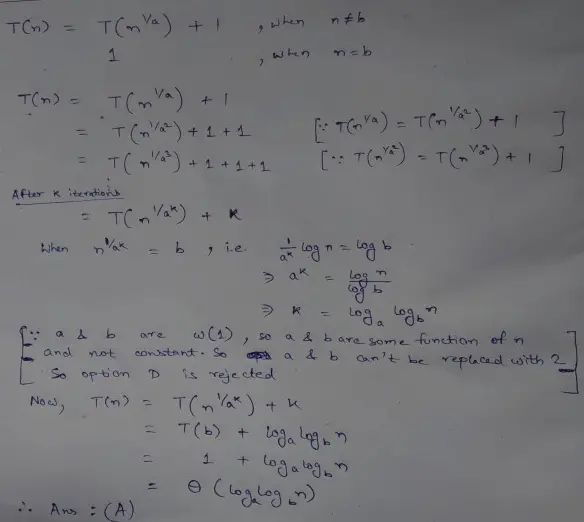 T(n) = T(n^{1/a}) + 1 , when n ≠ b
1 , when n = b
T(n) = T(n^{1/a}) + 1
= T(n^{1/a²}) + 1 + 1 [∵ T(n^{1/a}) = T(n^{1/a²}) + 1 ]
= T(n^{1/a³}) + 1 + 1 + 1 [∵ T(n^{1/a²}) = T(n^{1/a³}) + 1 ]
After K iterations
= T(n^{1/a^k}) + K
When n^{1/a^k} = b , i.e. 1/a^k log n = log b
⇒ a^k = log n / log b
⇒ K = log_a log_b n
[∵ a & b are ω(1), so a & b are some function of n
and not constant. So a & b can't be replaced with 2
So option D is rejected]
Now, T(n) = T(n^{1/a^k}) + K
= T(b) + log_a log_b n
= 1 + log_a log_b n
= Θ (log_a log_b n)
∴ Ans : (A)